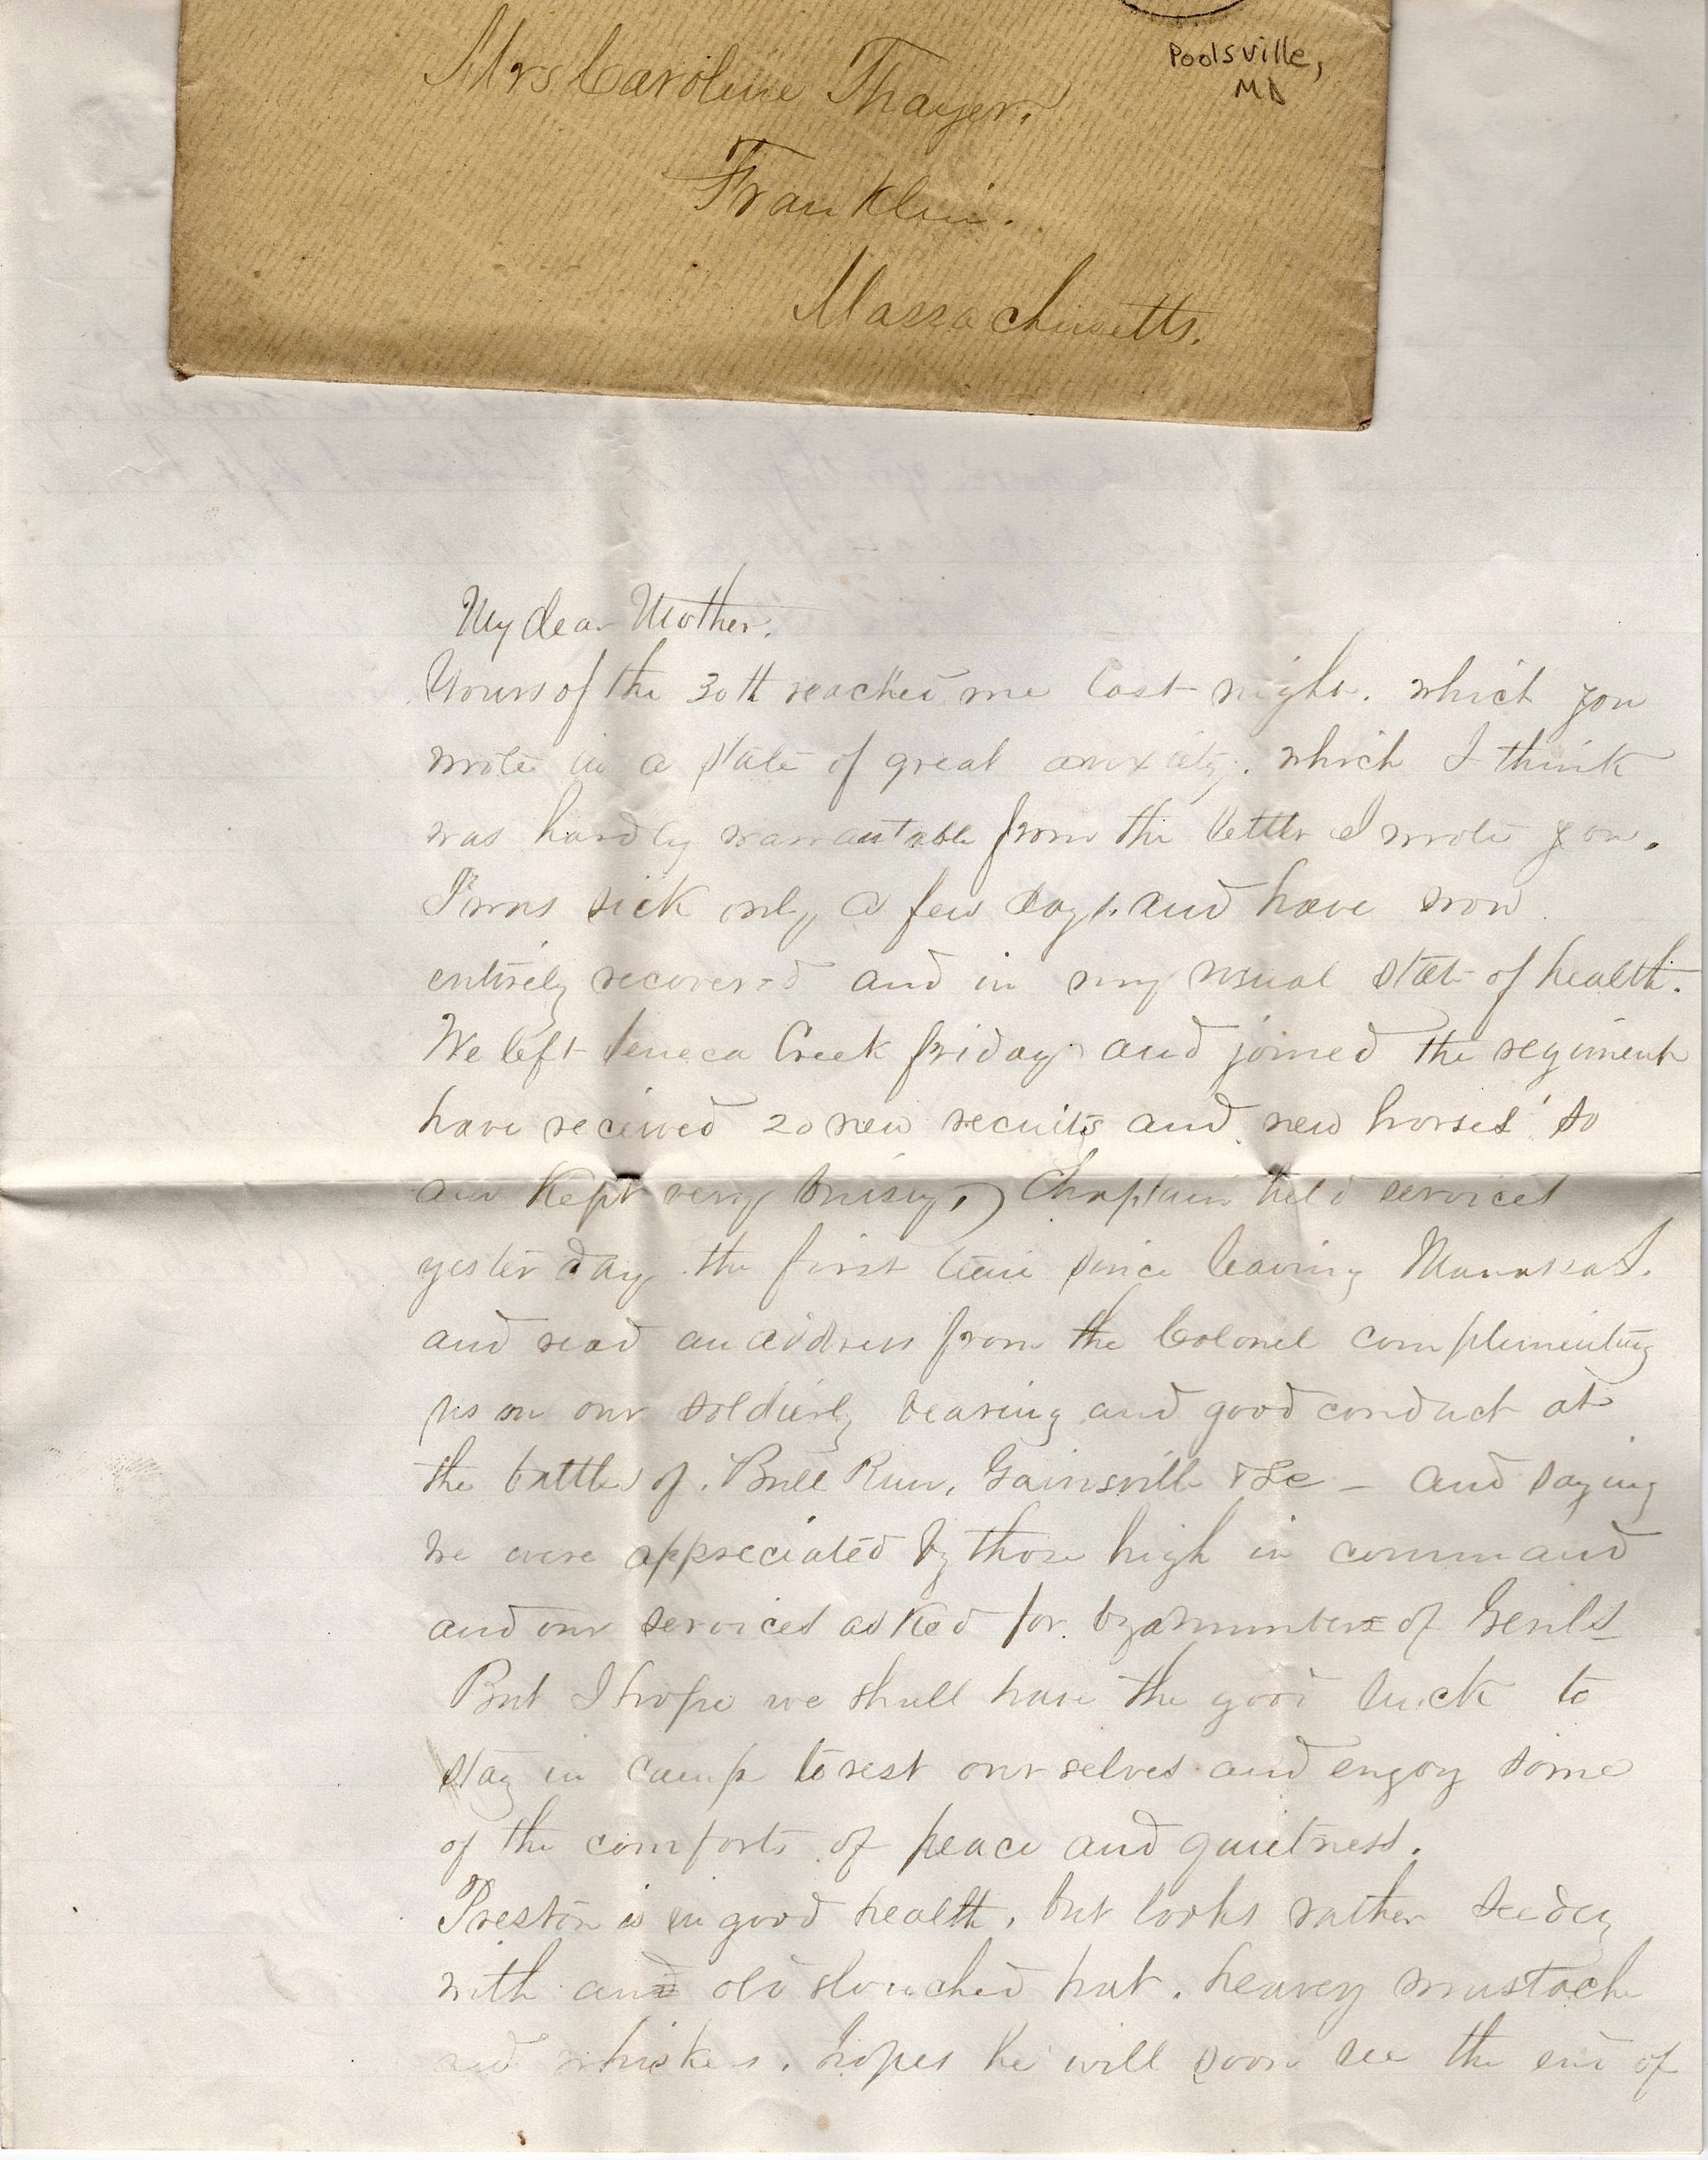 Mrs Caroline Thayer.
Poolsville,
MD
Franklin.
Massachusetts.
My dear Mother.
Yours of the 30th reached me last night. which you
wrote in a state of great anxiety. which I think
was hardly warrantable from the letter I wrote you.
I was sick only a few days. and have now
entirely recovered and in my usual state of health.
We left Seneca Creek friday and joined the regiment
have received 20 new recuits and new horses so
am kept very buisy, Chaplain held services
yesterday the first time since leaving Manassas.
and read an address from the Colonel complimenting
us on our soldierly bearing and good conduct at
the battles of Bull Run, Gainsvill &c - and saying
we were appreciated by those high in command
and our services asked for by a number of Genls
But I hope we shall have the good luck to
stay in camp to rest ourselves and enjoy some
of the comforts of peace and quietness.
Preston is in good health, but looks rather seedy
with an old slouched hat. heavey mustache
and whiskers. hopes he will soon see the end of